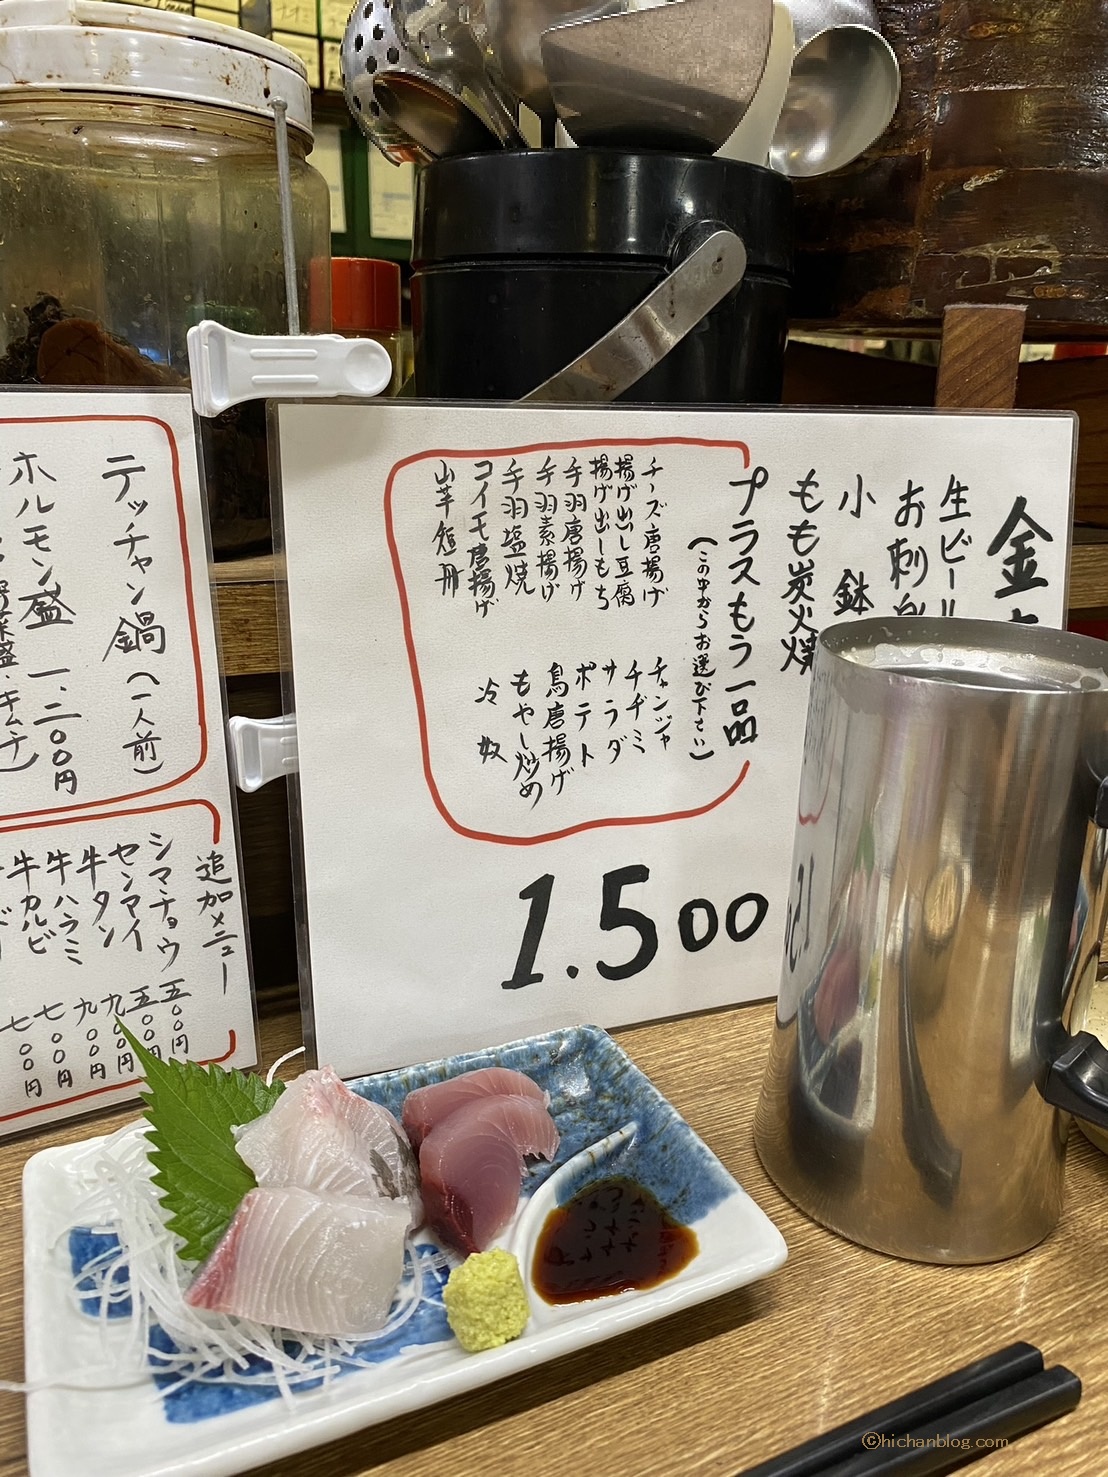 金
生ビール
お刺身
小鉢
もも炭火焼
プラスもう一品
(この中からお選び下さい)
チーズ唐揚げ
揚げ出し豆腐
揚げ出しもち
手羽唐揚げ
手羽素揚げ
手羽塩焼
コイモ唐揚げ
山芋短冊
チャンジャ
チヂミ
サラダ
ポテト
鳥唐揚げ
もやし炒め
冷奴
1.500
テッチャン鍋(一人前)
ホルモン盛 一、二〇〇円
追加メニュー
シマチョウ 五〇〇円
センマイ 五〇〇円
牛タン 九〇〇円
牛ハラミ 九〇〇円
牛カルビ 七〇〇円
七〇〇円
©hichanblog.com